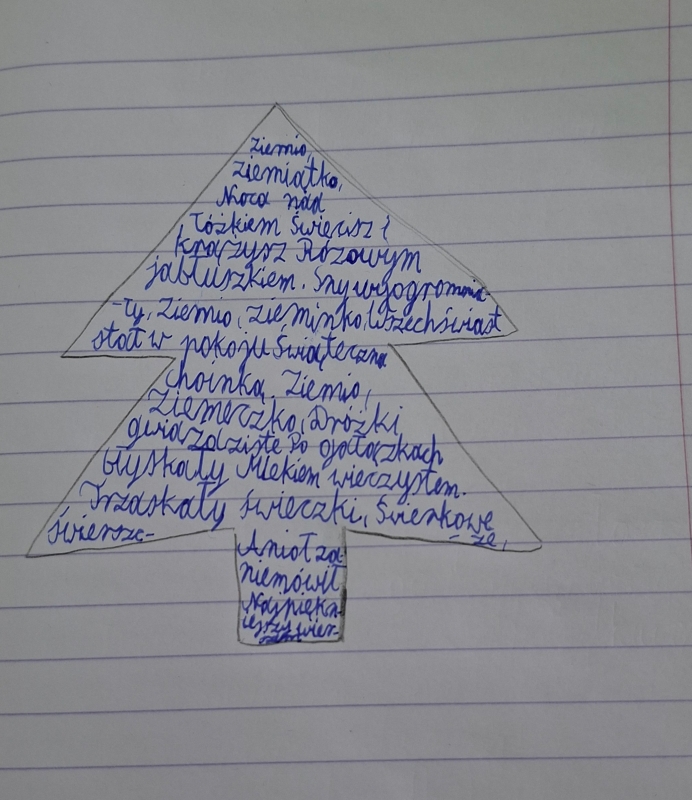 Ziemio,
Ziemiątko,
Nocą nad
łóżkiem Święcisz i
krążysz Różowym
jabłuszkiem. Sny wyogromnia-
-ły, Ziemio, Zieminko, Wszechświat
stał w pokoju Świąteczną
choinką. Ziemio,
Ziemeczko, Dróżki
gwiaździste Po gałązkach
błyskały Mlekiem wieczystem.
Trzaskały świeczki, Świerkowe
świersz-
cze,
Anioł za-
niemówił
Najpiękn-
iejszy wier-